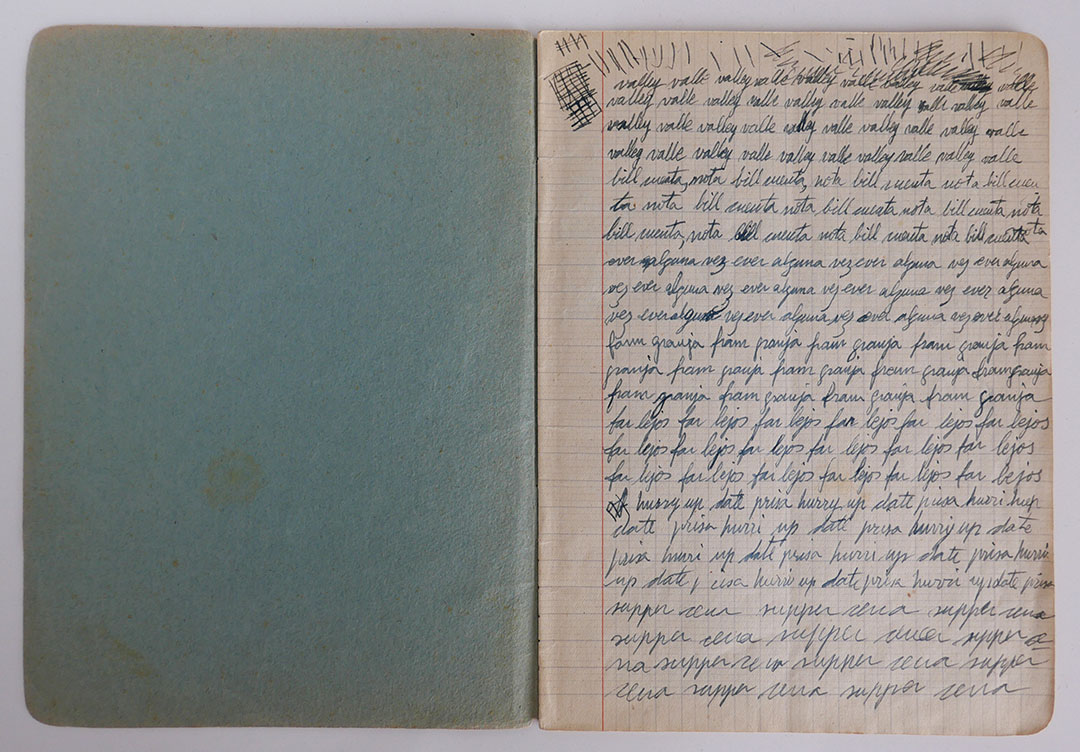 valley valle valley valle valley valle valley valle valley
valley valle valley valle valley valle valley valle valley valle
valley valle valley valle valley valle valley valle valley valle
valley valle valley valle valley valle valley valle valley valle
bill cuenta, nota bill cuenta, nota bill cuenta nota bill cuen
ta nota bill cuenta nota, bill cuenta nota bill cuenta nota
bill cuenta, nota bill cuenta nota bill cuenta nota bill cuenta
ever alguna vez ever alguna vez ever alguna vez ever alguna
vez ever alguna vez ever alguna vez ever alguna vez ever alguna
vez ever alguna vez ever alguna vez ever alguna vez ever alguna
farm granja fram granja fram granja fram granja fram
granja fram granja fram granja fram granja fram granja
fram granja fram granja fram granja fram granja
far lejos far lejos far lejos far lejos far lejos far lejos
far lejos far lejos far lejos far lejos far lejos far lejos
far lejos far lejos far lejos far lejos far lejos far lejos
hurry up date prisa hurry up date prisa hurri
date prisa hurri up date prisa hurry up date
prisa hurri up date prisa hurri up date prisa hurri
up date prisa hurri up date prisa hurri up date prisa
supper cena supper cena supper cena
supper cena supper cena supper ce
na supper cena supper cena supper
cena supper cena supper cena